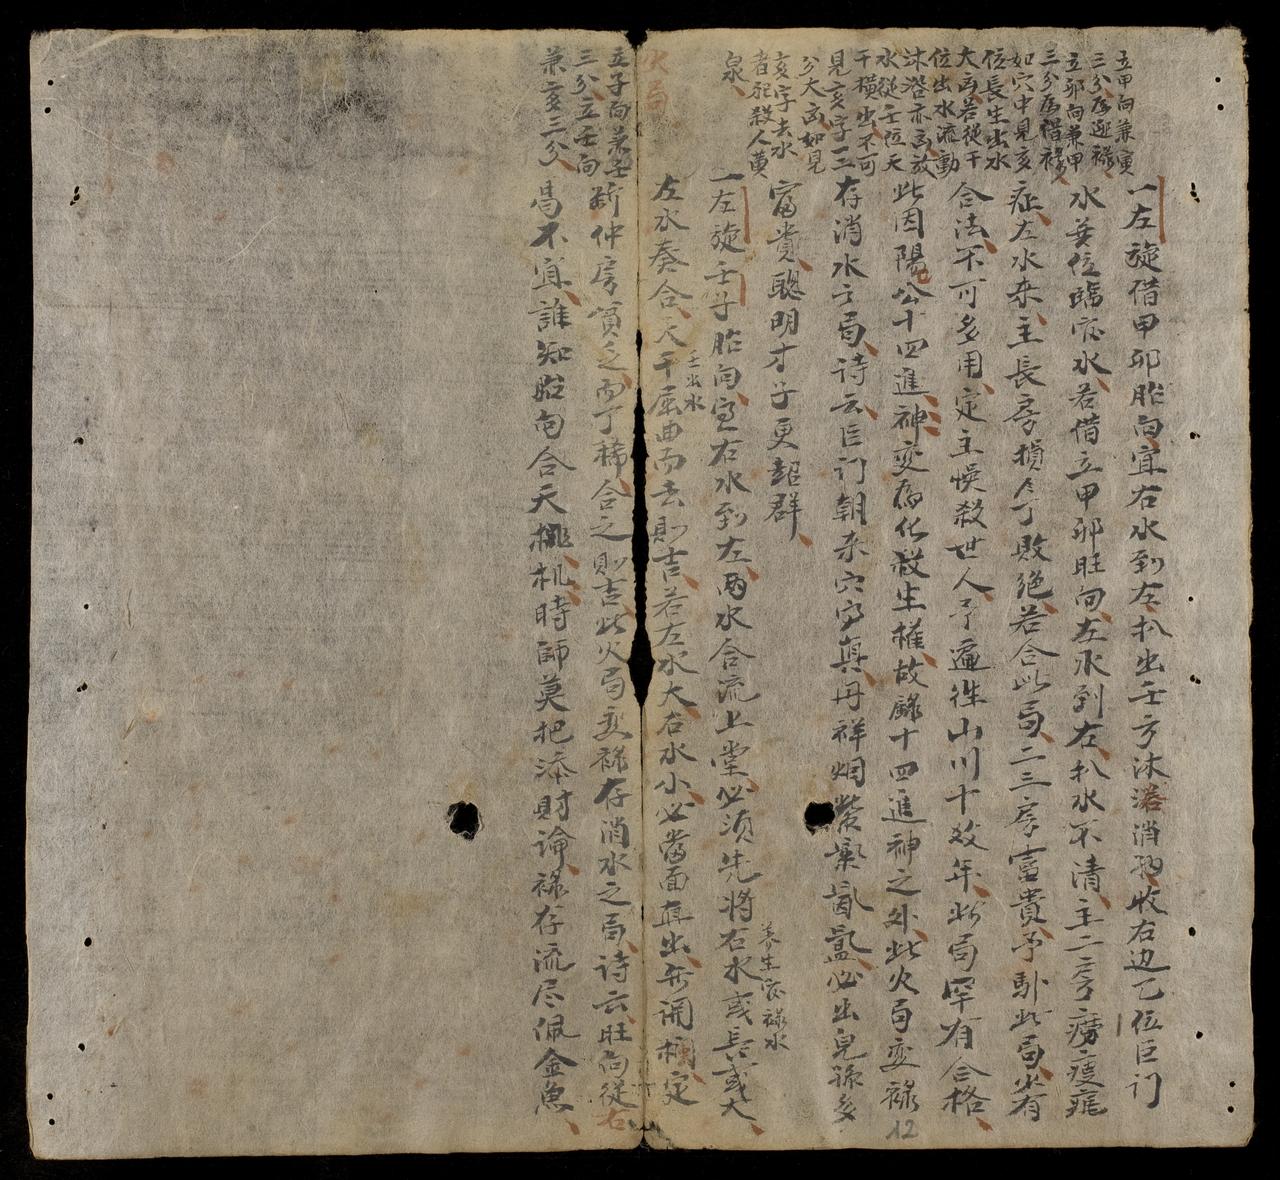 立甲向兼寅
三分為進祿
立卯向兼甲
三分為借祿
如穴中見亥
位長生出水
大忌若從干
位出水流動
沐浴亦忌放
水從壬位天
干橫出不可
見亥字三
分大忌如見
亥字去水
者犯殺人黄
泉
一左旋借甲卯胎向宜右水到左扒出壬方沐浴消納收右边乙位巨门
水並位臨官水若借立甲卯旺向左水到左扒水不清主二房癆瘦疵
症左水来主長房損丁敗絕若合此局二三房富貴予馱此局必有
合法不可多用定主悞殺世人予遍徃山川十数年此局罕有合格
此因陽公十四進神变為化殺生權故錄十四進神之外此火局变祿
12
存消水之局詩云巨门朝来穴穴真丹祥烟紫氣氤氳必出兒孫多
富貴聰明才子更超群
一左旋壬子胎向宜右水到左两水合流上堂必須先將右水或長或大
养生官祿水
左水奏合天干屈曲而去則吉若左水大右水小必當面直出無闹欄定
壬出水
火局
立子向兼壬
三分立壬向
兼亥三分
斷仲房貧乏而丁稀合之則吉此火局变祿存消水之局詩云旺向從右
局不宜誰知胎向合天機机時師莫把添財論祿存流尽佩金魚